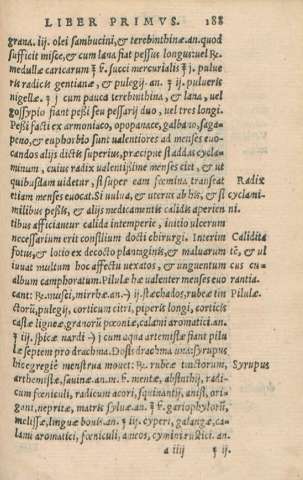 LIBER PRIMVS. 188
grana. iij. olei sambucini, & terebinthinæ. an. quod
sufficit misce, & cum lana fiat pessus longus: vel ℞.
medullæ caricarum ℥ ß. succi mercurialis ℥ j. pulue
ris radicis gentianæ, & pulegij. an. ℥ ij. pulueris
nigellæ. ℥ j cum pauca terebinthina, & lana, vel
gossypio fiant pessi seu pessarij duo, vel tres longi.
Pessi facti ex armoniaco, opopanace, galbano, saga-
peno, & euphorbio sunt ualentiores ad menses euo-
candos alijs dictis superius, præcipue si addas cycla-
minum, cuius radix valentissime menses ciet, & ut
quibusdam uidetur, si super eam fœmina transeat Radix
etiam menses euocat. Si uulua, & uterus ab his, & si cyclami-
milibus pessis, & alijs medicamentis calidis aperien ni.
tibus afficiantur calida intemperie, initio ulcerum
necessarium erit consilium docti chirurgi. Interim Calidita
fotus, & lotio ex decocto plantaginis, & maluarum tē, & ul
iuuat multum hoc affectu uexatos, & unguentum cus cu-
album camphoratum. Pilulæ hæ valenter menses euo rantia.
cant: ℞. musci, mirrhæ. an. ij. stæchados, rubeæ tin Pilulæ.
ctorij, pulegij, corticum citri, piperis longi, corticis
castæ ligneæ. granorū pæoniæ, calami aromatici. an.
℥ iij. spicæ nardi j cum aqua artemisiæ fiant pilu
læ septem pro drachma. Dosis drachma una: Syrupus
hic egregie menstrua mouet: ℞. rubeæ tinctorum, Syrupus
arthemisiæ, sauinæ. an. m. ß. mentæ, absithij, radi-
cum fœniculi, radicum acori, squinantij, anisi, ori-
gani, nepritæ, matris syluæ. an. ℥ ß. gariophylorū,
melissæ, linguæ bouis. an. ℥ iij. cyperi, galangæ, ca-
lami aromatici, fœniculi, ameos, cymini rustici. an.
a iiij ℥ ij.